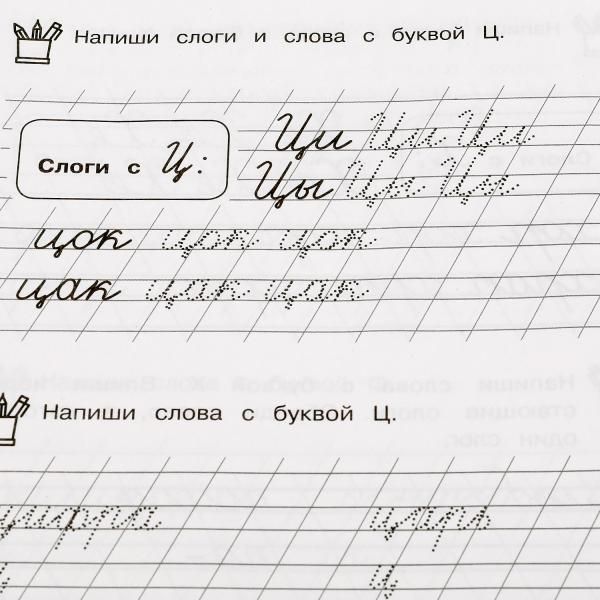 Напиши слоги и слова с буквой Ц.
Слоги с Ц:
Ци Ци Ци
Цы Цы Цы
цок цок цок
цак цак цак
Напиши слова с буквой Ц.